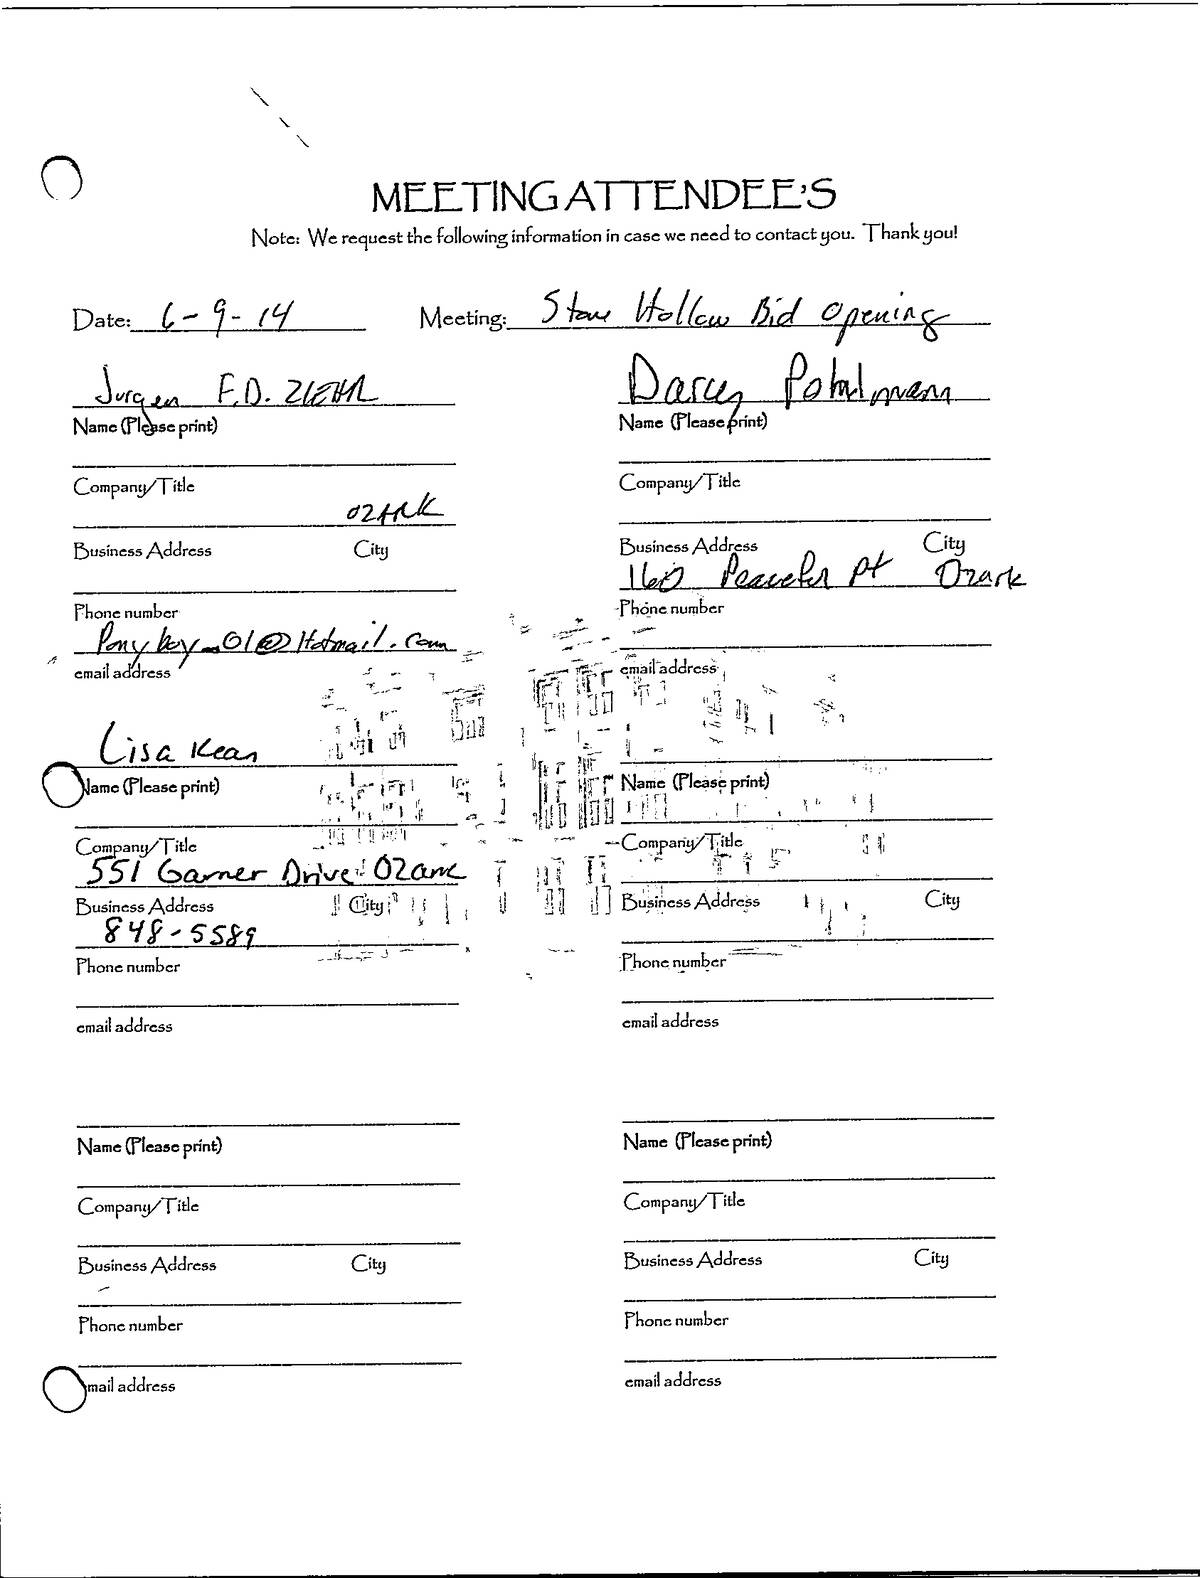 MEETING ATTENDEE'S
Note: We request the following information in case we need to contact you. Thank you!
Date: 6-9-14 Meeting: Stone Hollow Bid Opening
Jurgen F.D. ZIEHR
Name (Please print)
Company/Title
OZARK
Business Address City
Phone number
Ponyboy_01@Hotmail.com
email address
Darcy
Name (Please print)
Company/Title
Business Address City
160 Pt Ozark
Phone number
email address
Lisa Kean
Name (Please print)
Company/Title
551 Garner Drive Ozark
Business Address City
848-5589
Phone number
email address
Name (Please print)
Company/Title
Business Address City
Phone number
email address
Name (Please print)
Company/Title
Business Address City
Phone number
mail address
Name (Please print)
Company/Title
Business Address City
Phone number
email address